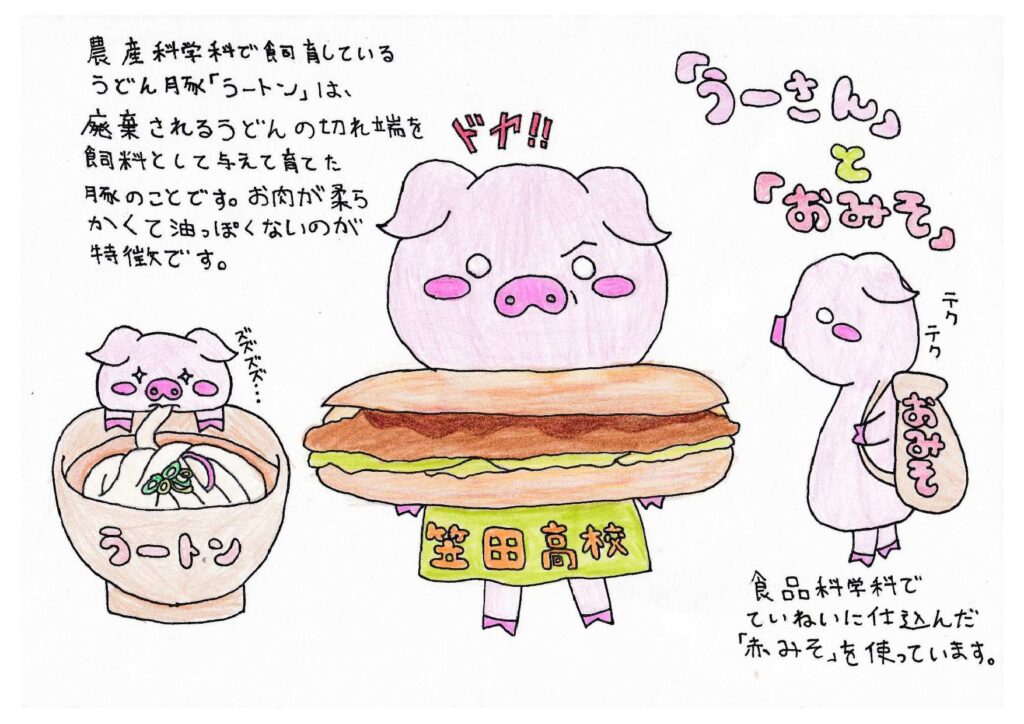 農産科学科で飼育している
うどん豚「ラートン」は、
廃棄されるうどんの切れ端を
飼料として与えて育てた
豚のことです。お肉が柔ら
かくて油っぽくないのが
特徴です。
ドヤ!!
「うーさん」
と
「おみそ」
ズズズズ…
ラートン
笠田高校
テク
テク
おみそ
食品科学科で
ていねいに仕込んだ
「赤みそ」を使っています。